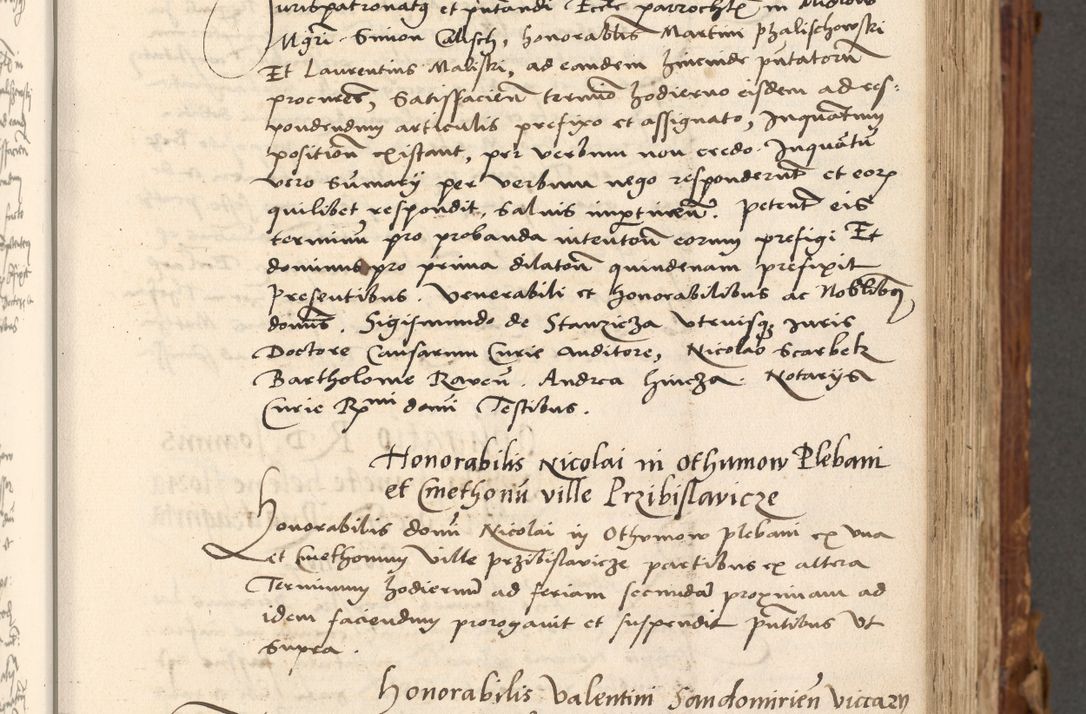 Jurispatronatq et putandi Eccle parrochle in
Mgri Simon Calisch, honorabilis Martini Phalischowski
Et Laurentius Maliski, ad eandem hincinde putatorum
procures, Satisfacien termino hodierno eisdem ad res:
pondendum articulis prefixo et assignato, Inquantum
position existant, per verbum non credo. Inquatu
vero sumarij per verbum nego responderunt et eorp
quilibet respondit, salvis
Petent eis
terminu pro probanda intentou eorum prefigi Et
dominus pro prima dilatou quindenam prefixit
Presentibus. Venerabili et honorabilibus ac Nobilibq
domis. Sigismundo de Stanzicza Utriusq Juris
Doctore Causarum Curie Auditore, Nicolao Scarbek
Bartholome Raven. Andrea hincza. Notarijs
Curie Rmi domi Testibus.
Honorabilis Nicolai in Othumow Plebani
et Cmethonu ville Przibislavicze
Honorabilis domi Nicolai in Othumow plebani ex una
et Cmethonum ville przibislavicze partibus ex altera
Terminum hodiernu ad feriam secunda proximam ad
idem faciendum prorogavit et suspendit pntibus ut
supra.
Honorabilis Valentini Sandomirien viccarij